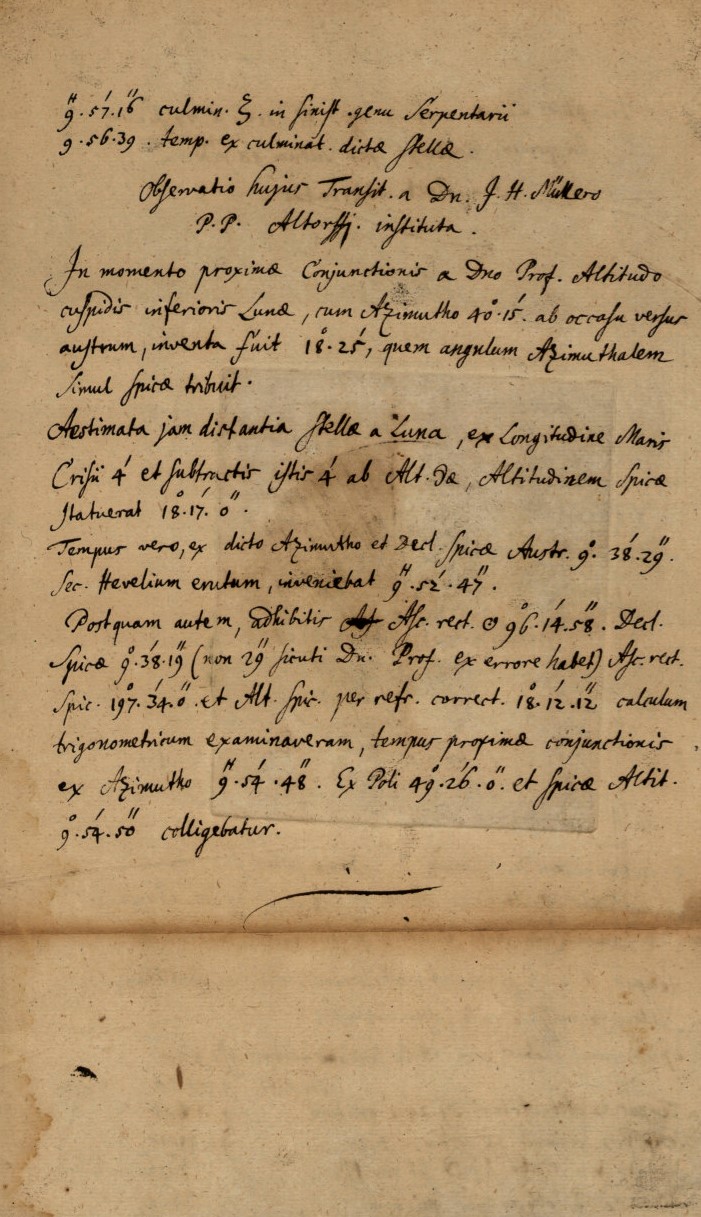 9.57.16 culmin. ξ. in sinist. genu Serpentarii
9.56.39. temp. ex culminat. dictæ stellæ.
Observatio hujus Transit. a Dn. J. H. Müllero
P.P. Altorffj. instituta.
In momento proximæ Conjunctionis a Dno Prof. Altitudo
cuspidis inferioris Lunæ, cum Azimutho 40°.15'. ab occasu versus
austrum, inventa fuit 18°.25', quem angulum Azimuthalem
simul spicæ tribuit.
Aestimata jam distantia stellæ a Luna, ex Longitudine Maris
Crisii 4' et subtractis istis 4' ab Alt. dæ, Altitudinem Spicæ
statuerat 18°.17'.0".
Tempus vero, ex dicto Azimutho et Decl. Spicæ Austr. 9°.38'.29".
Sec. Hevelium erutum, inveniebat 9H.52'.47".
Postquam autem, adhibitis Asc. rect. ☉ 96°.14'.58". Decl.
Spicæ 9°.38'.19" (non 29" sicuti Dn. Prof. ex errore habet) Asc. rect.
Spic. 197°.34'.0". et Alt. Spic. per refr. correct. 18°.12'.12" calculum
trigonometricum examinaveram, tempus proximæ conjunctionis
ex Azimutho 9H.54'.48". Ex Poli 49°.26'.0". et Spicæ Altit.
9°.54'.50" colligebatur.